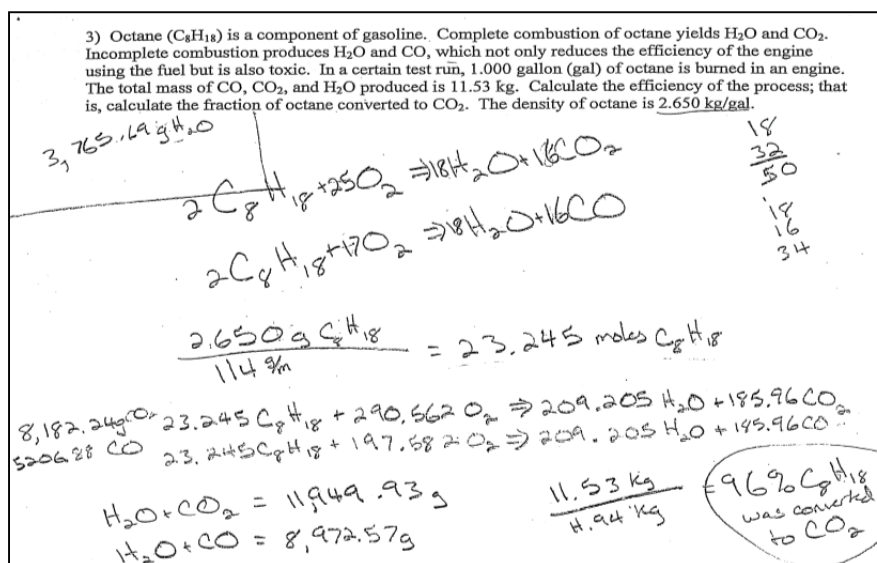 3) Octane (C₈H₁₈) is a component of gasoline. Complete combustion of octane yields H₂O and CO₂.
Incomplete combustion produces H₂O and CO, which not only reduces the efficiency of the engine
using the fuel but is also toxic. In a certain test run, 1.000 gallon (gal) of octane is burned in an engine.
The total mass of CO, CO₂, and H₂O produced is 11.53 kg. Calculate the efficiency of the process; that
is, calculate the fraction of octane converted to CO₂. The density of octane is 2.650 kg/gal.
3,765.69 g H₂O
2 C₈H₁₈ + 25O₂ ⇒ 18H₂O + 16CO₂
18
32
50
2C₈H₁₈ + 17O₂ ⇒ 18H₂O + 16CO
18
16
34
2,650 g C₈H₁₈
114 g/m
= 23.245 moles C₈H₁₈
8,182.24g CO₂ 23.245 C₈H₁₈ + 290.562 O₂ ⇒ 209.205 H₂O + 185.96 CO₂
5206.88 CO 23.245 C₈H₁₈ + 197.582 O₂ ⇒ 209.205 H₂O + 185.96 CO
H₂O + CO₂ = 11,949.93 g
H₂O + CO = 8,972.57g
11.53 kg
11.94 kg
= 96% C₈H₁₈
was converted
to CO₂